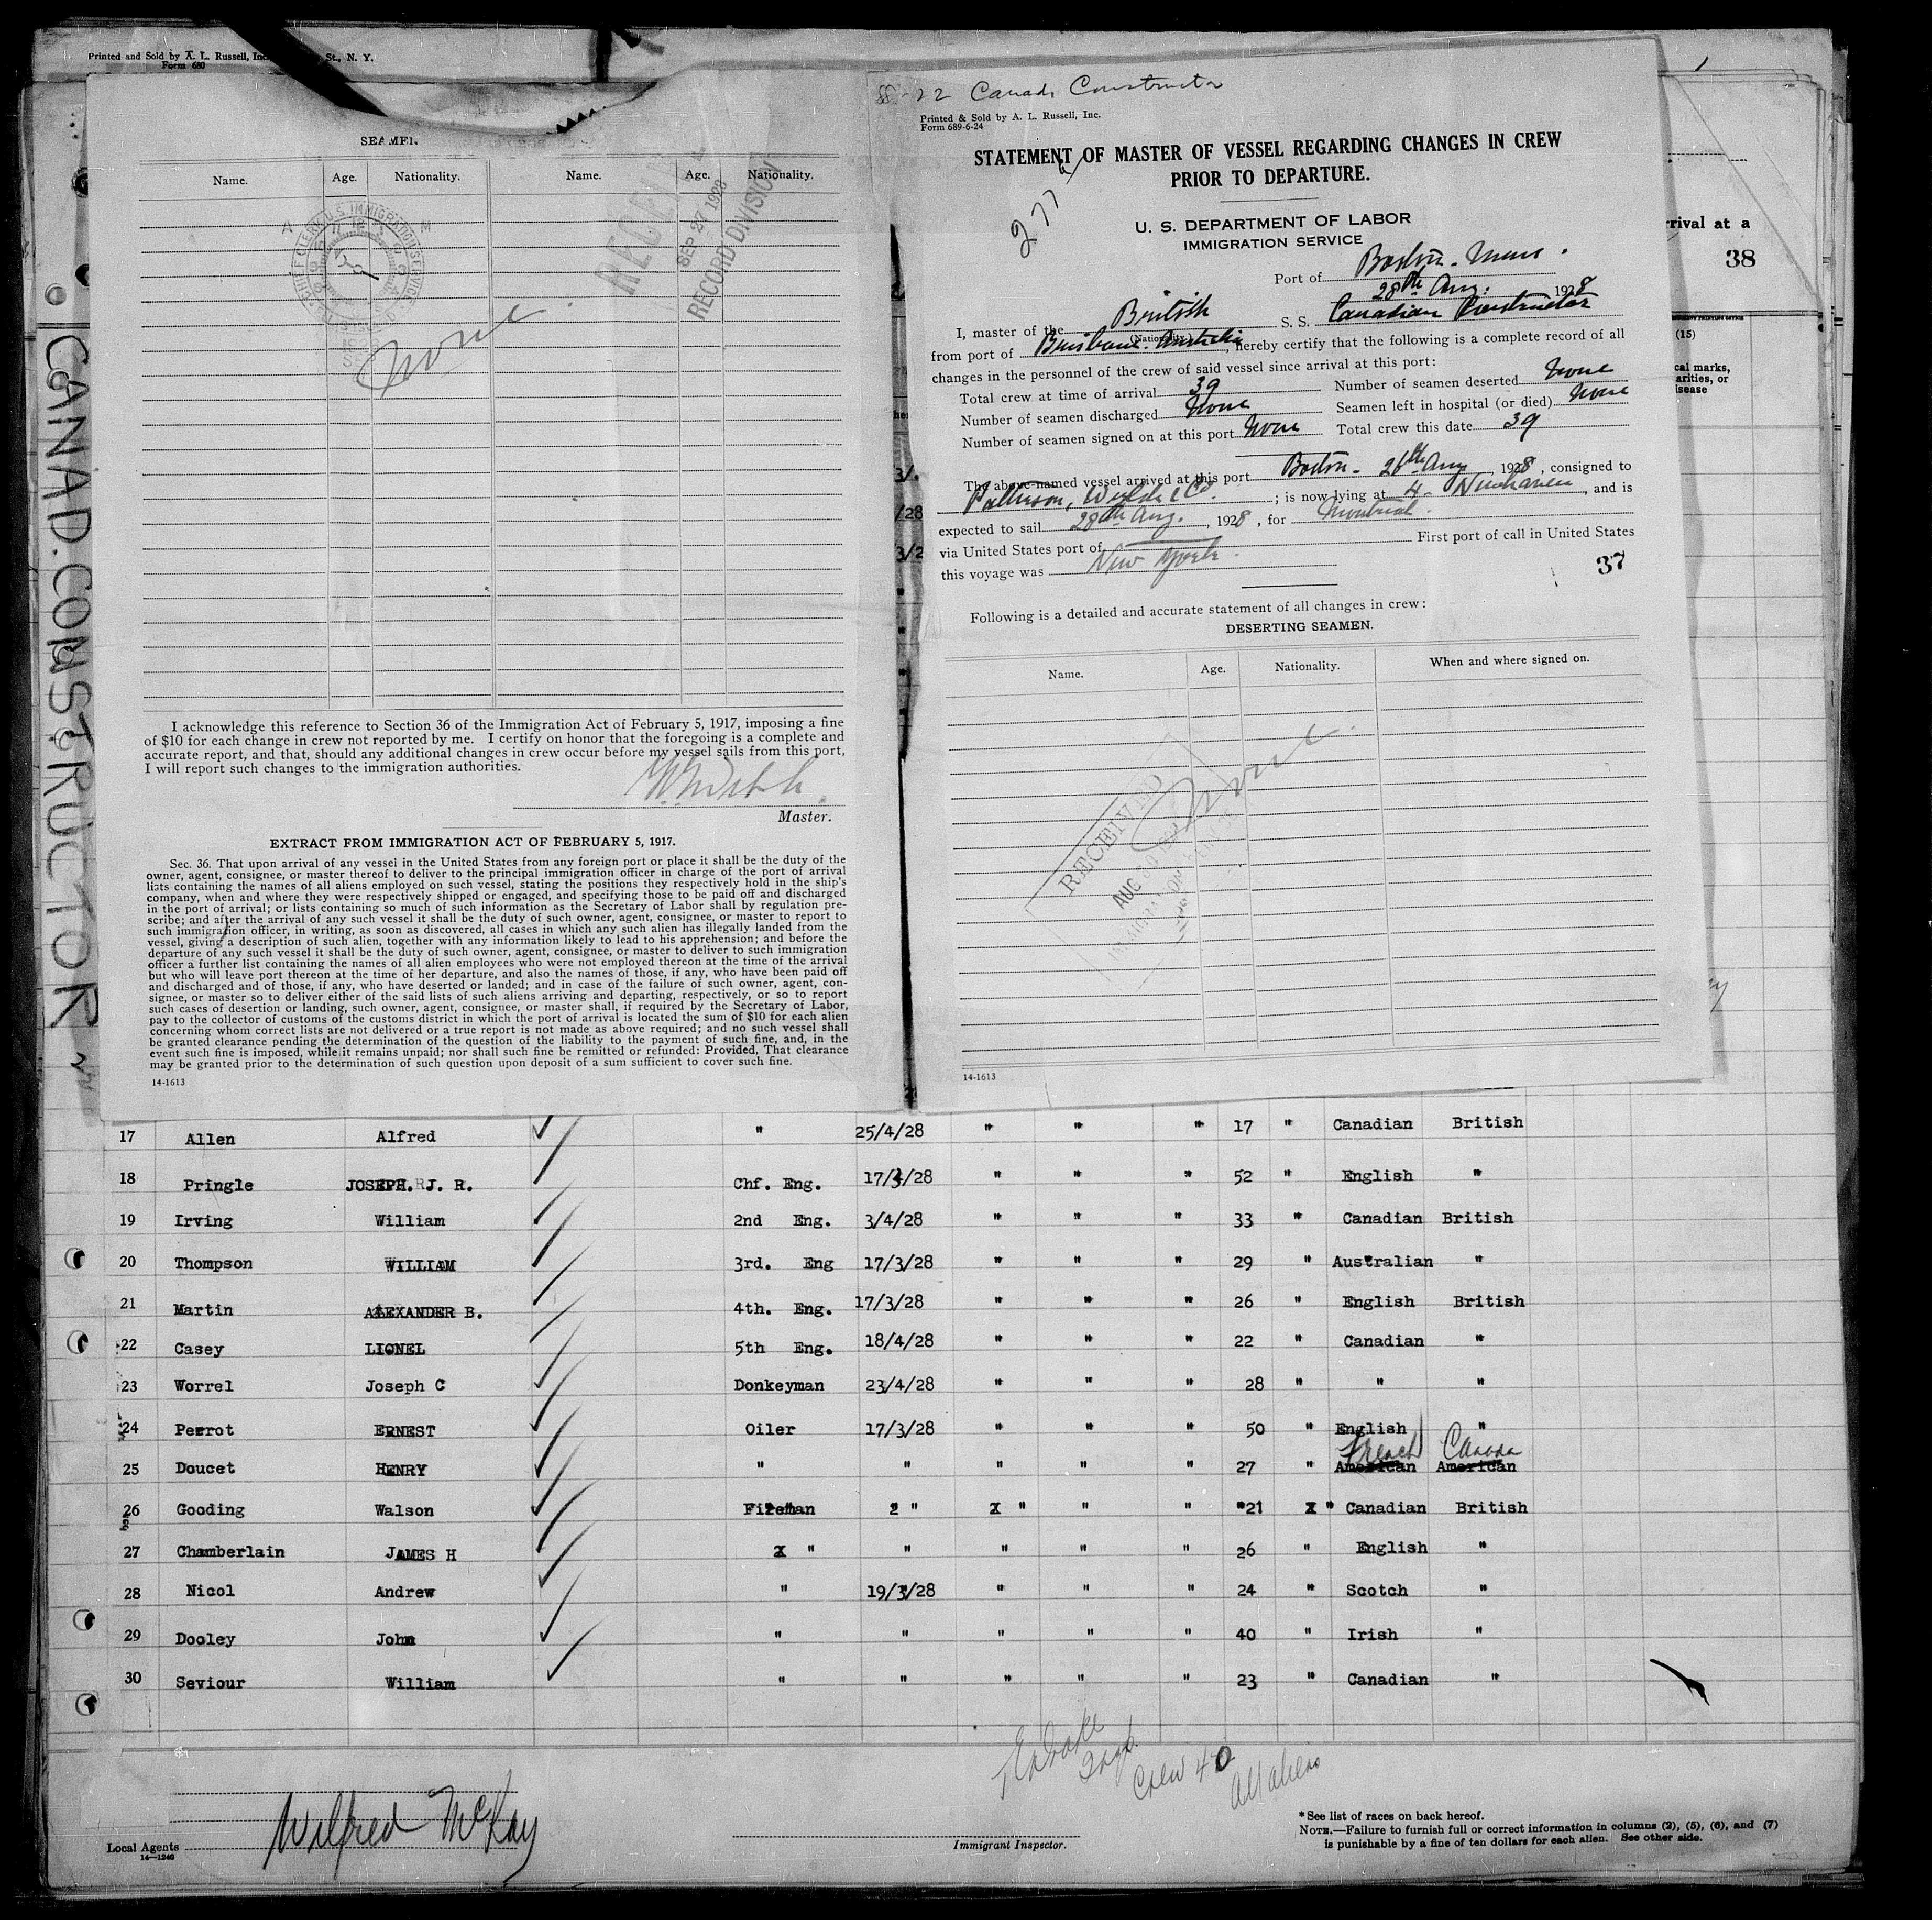 Printed and Sold by A. L. Russell, Inc. St., N. Y.
Form 680
CANAD. CONSTRUCTOR
SEAMEN.
Name. Age. Nationality. Name. Age. Nationality.
CHIEF CLERK U.S. IMMIGRATION SERVICE
RECEIVED
SEP 27 1928
RECORD DIVISION
None
I acknowledge this reference to Section 36 of the Immigration Act of February 5, 1917, imposing a fine
of $10 for each change in crew not reported by me. I certify on honor that the foregoing is a complete and
accurate report, and that, should any additional changes in crew occur before my vessel sails from this port,
I will report such changes to the immigration authorities.
Master.
EXTRACT FROM IMMIGRATION ACT OF FEBRUARY 5, 1917.
Sec. 36. That upon arrival of any vessel in the United States from any foreign port or place it shall be the duty of the
owner, agent, consignee, or master thereof to deliver to the principal immigration officer in charge of the port of arrival
lists containing the names of all aliens employed on such vessel, stating the positions they respectively hold in the ship's
company, when and where they were respectively shipped or engaged, and specifying those to be paid off and discharged
in the port of arrival; or lists containing so much of such information as the Secretary of Labor shall by regulation pre-
scribe; and after the arrival of any such vessel it shall be the duty of such owner, agent, consignee, or master to report to
such immigration officer, in writing, as soon as discovered, all cases in which any such alien has illegally landed from the
vessel, giving a description of such alien, together with any information likely to lead to his apprehension; and before the
departure of any such vessel it shall be the duty of such owner, agent, consignee, or master to deliver to such immigration
officer a further list containing the names of all alien employees who were not employed thereon at the time of the arrival
but who will leave port thereon at the time of her departure, and also the names of those, if any, who have been paid off
and discharged and of those, if any, who have deserted or landed; and in case of the failure of such owner, agent, con-
signee, or master so to deliver either of the said lists of such aliens arriving and departing, respectively, or so to report
such cases of desertion or landing, such owner, agent, consignee, or master shall, if required by the Secretary of Labor,
pay to the collector of customs of the customs district in which the port of arrival is located the sum of $10 for each alien
concerning whom correct lists are not delivered or a true report is not made as above required; and no such vessel shall
be granted clearance pending the determination of the question of the liability to the payment of such fine, and, in the
event such fine is imposed, while it remains unpaid; nor shall such fine be remitted or refunded: Provided, That clearance
may be granted prior to the determination of such question upon deposit of a sum sufficient to cover such fine.
14-1613
22 Canad. Constructor
Printed & Sold by A. L. Russell, Inc.
Form 689-6-24
STATEMENT OF MASTER OF VESSEL REGARDING CHANGES IN CREW
PRIOR TO DEPARTURE.
277
U. S. DEPARTMENT OF LABOR
IMMIGRATION SERVICE
Port of Boston. Mass.
28th Aug. 1928
I, master of the British S. S. Canadian Constructor
(Nationality)
from port of Brisbane. Australia, hereby certify that the following is a complete record of all
changes in the personnel of the crew of said vessel since arrival at this port:
Total crew at time of arrival 39 Number of seamen deserted None
Number of seamen discharged None Seamen left in hospital (or died) None
Number of seamen signed on at this port None Total crew this date 39
The above-named vessel arrived at this port Boston - 26th Aug, 1928, consigned to
Patterson, Wylde & Co. ; is now lying at 4 - Newhaven, and is
expected to sail 28th Aug., 1928, for Montreal.
via United States port of First port of call in United States
this voyage was New York.
37
Following is a detailed and accurate statement of all changes in crew:
DESERTING SEAMEN.
Name. Age. Nationality. When and where signed on.
None
RECEIVED
AUG
14-1613
rrival at a
38
(15)
cal marks,
arities, or
isease
17 Allen Alfred " 25/4/28 " " " 17 " Canadian British
18 Pringle JOSEPH. J. R. Chf. Eng. 17/3/28 " " " 52 " English "
19 Irving William 2nd Eng. 3/4/28 " " " 33 " Canadian British
20 Thompson WILLIAM 3rd. Eng 17/3/28 " " " 29 " Australian "
21 Martin ALEXANDER B. 4th. Eng. 17/3/28 " " " 26 " English British
22 Casey LIONEL 5th Eng. 18/4/28 " " " 22 " Canadian "
23 Worrel Joseph C Donkeyman 23/4/28 " " " 28 " " "
24 Perrot ERNEST Oiler 17/3/28 " " " 50 " English "
French Canada
25 Doucet HENRY " " " " " 27 " American American
26 Gooding Walson Fireman " " " " 21 " Canadian British
27 Chamberlain JAMES H " " " " " 26 " English "
28 Nicol Andrew " 19/3/28 " " " 24 " Scotch "
29 Dooley John " " " " " 40 " Irish "
30 Seviour William " " " " " 23 " Canadian "
Crew 40
All aliens
Local Agents Wilfred McKay
14-1240
Immigrant Inspector.
*See list of races on back hereof.
NOTE.—Failure to furnish full or correct information in columns (2), (5), (6), and (7)
is punishable by a fine of ten dollars for each alien. See other side.